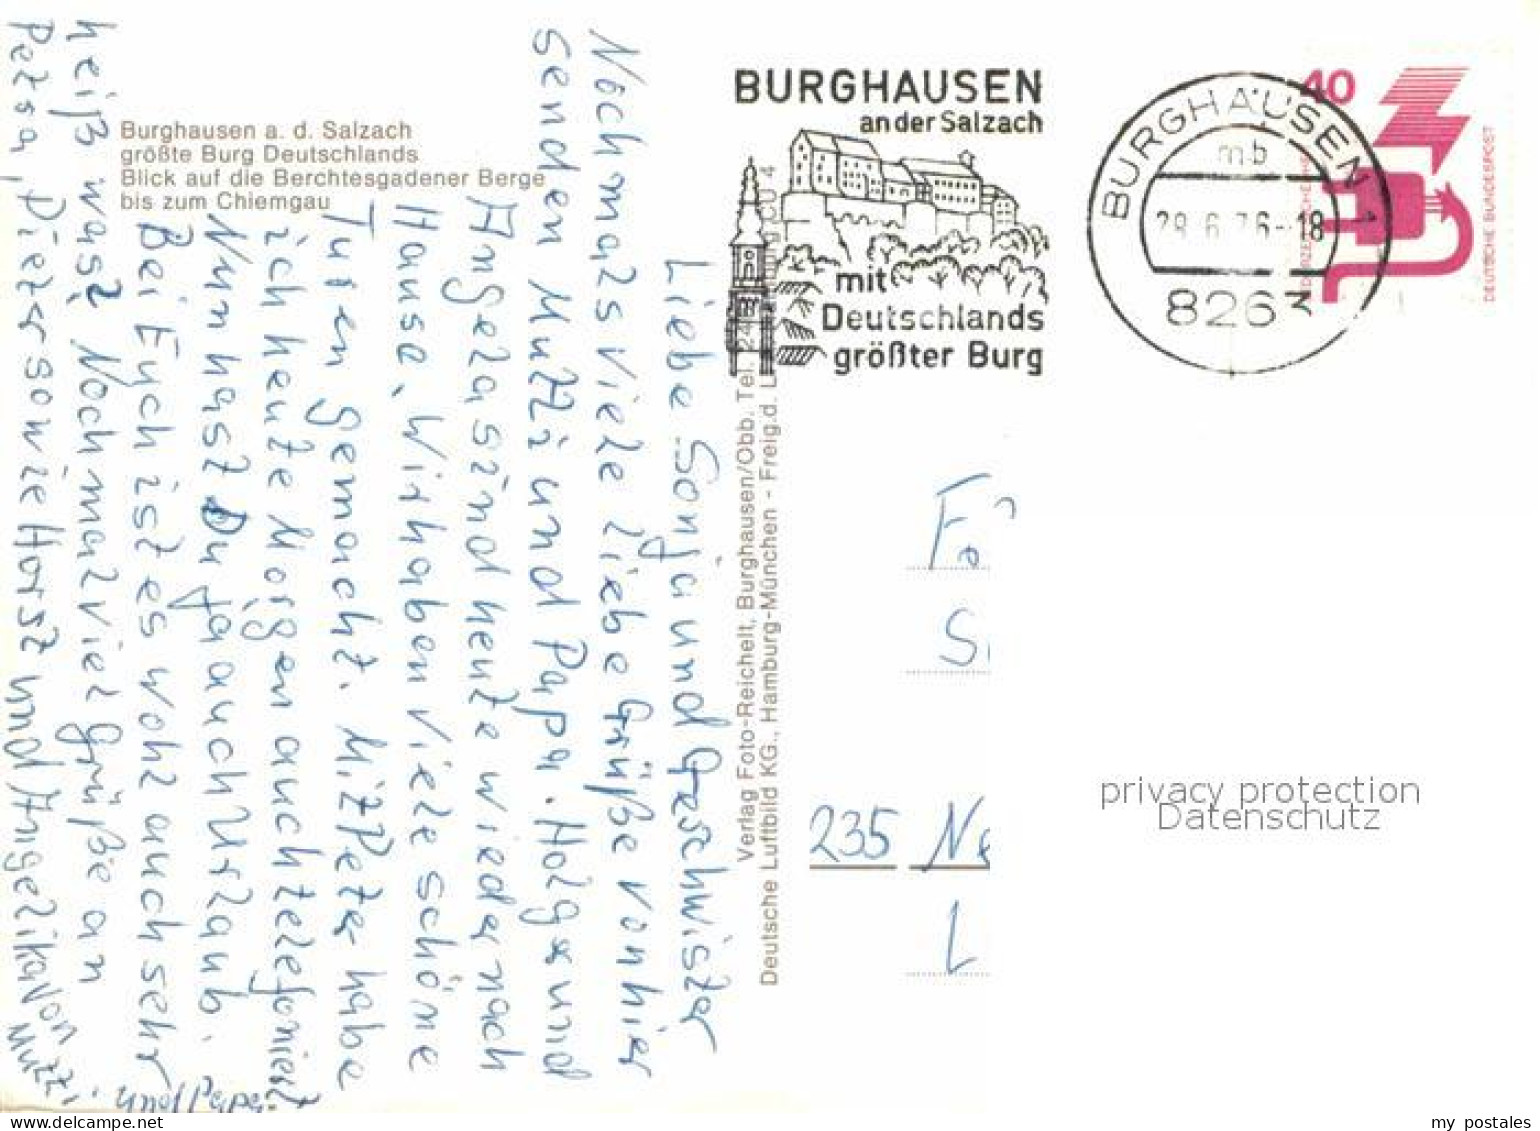 Burghausen a. d. Salzach
größte Burg Deutschlands
Blick auf die Berchtesgadener Berge
bis zum Chiemgau
Liebe Sonja und Geschwister
Nochmals viele liebe Grüße von hier
senden Mutti und Papa. Holger und
Angela sind heute wieder nach
Hause, Wir haben viele schöne
Turen gemacht. Mit Peter habe
ich heute Morgen auch telefoniert
Nun hast Du ja auch Urlaub.
Bei Euch ist es wohl auch sehr
heiß was? Nochmal viel Grüße an
Petra, Dieter sowie Horst und Angelika von
Mutti
Verlag Foto-Reichelt, Burghausen/Obb. Tel.
Deutsche Luftbild KG., Hamburg-München - Freig.d.
BURGHAUSEN
an der Salzach
mit
Deutschlands
größter Burg
BURGHAUSEN
mb
28.6.76-18
8263
40
DEUTSCHE BUNDESPOST
235
L
privacy protection
Datenschutz
www.delcampe.net
my_postales